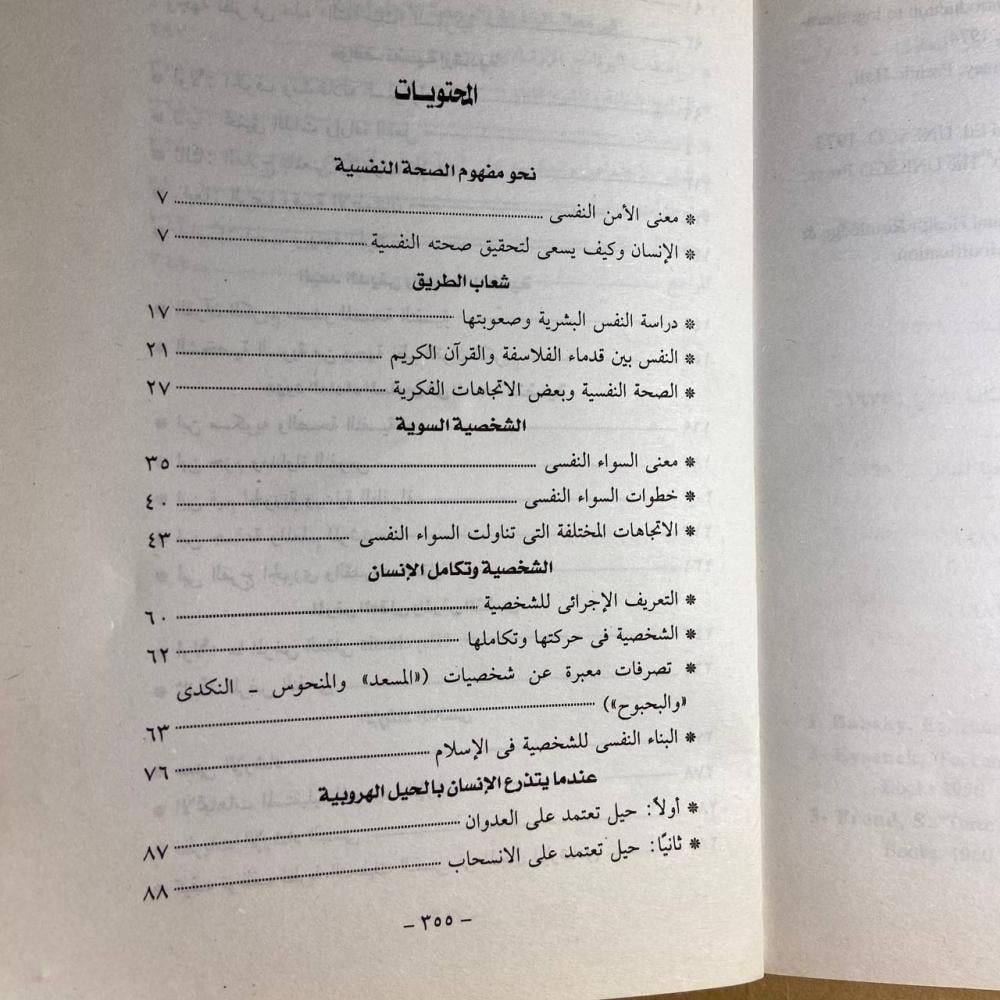 المحتويات
نحو مفهوم الصحة النفسية
* معنى الأمن النفسى ٧
* الإنسان وكيف يسعى لتحقيق صحته النفسية ٧
شعاب الطريق
* دراسة النفس البشرية وصعوبتها ١٧
* النفس بين قدماء الفلاسفة والقرآن الكريم ٢١
* الصحة النفسية وبعض الاتجاهات الفكرية ٢٧
الشخصية السوية
* معنى السواء النفسى ٣٥
* خطوات السواء النفسى ٤٠
* الاتجاهات المختلفة التى تناولت السواء النفسى ٤٣
الشخصية وتكامل الإنسان
* التعريف الإجرائى للشخصية ٦٠
* الشخصية فى حركتها وتكاملها ٦٢
* تصرفات معبرة عن شخصيات («المسعد» والمنحوس ـ النكدى
«والبحبوح») ٦٣
* البناء النفسى للشخصية فى الإسلام ٧٦
عندما يتذرع الإنسان بالحيل الهروبية
* أولاً: حيل تعتمد على العدوان ٨٧
* ثانيًا: حيل تعتمد على الانسحاب ٨٨
- ٣٥٥ -